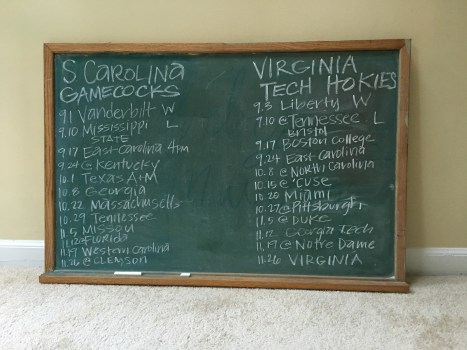 S CAROLINA
GAMECOCKS
9.1 Vanderbilt W
9.10 Mississippi L
STATE
9.17 East Carolina 4pm
9.24 @ Kentucky
10.1 Texas A+M
10.8 Georgia
10.22 Massachusetts
10.29 Tennessee
11.5 Missou
11.12 @ Florida
11.19 Western Carolina
11.26 @ CLEMSON
VIRGINIA
TECH HOKIES
9.3 Liberty W
9.10 @ Tennessee L
Bristol
9.17 Boston College
9.24 East Carolina
10.8 @ North Carolina
10.15 @ 'CUSE
10.20 Miami
10.27 @ Pittsburgh
11.5 @ Duke
11.12 Georgia Tech
11.19 @ Notre Dame
11.26 VIRGINIA